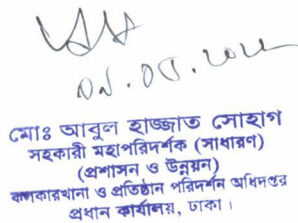 মোঃ আবুল হাজ্জাত সোহাগ
সহকারী মহাপরিদর্শক (সাধারণ)
(প্রশাসন ও উন্নয়ন)
কলকারখানা ও প্রতিষ্ঠান পরিদর্শন অধিদপ্তর
প্রধান কার্যালয়, ঢাকা।